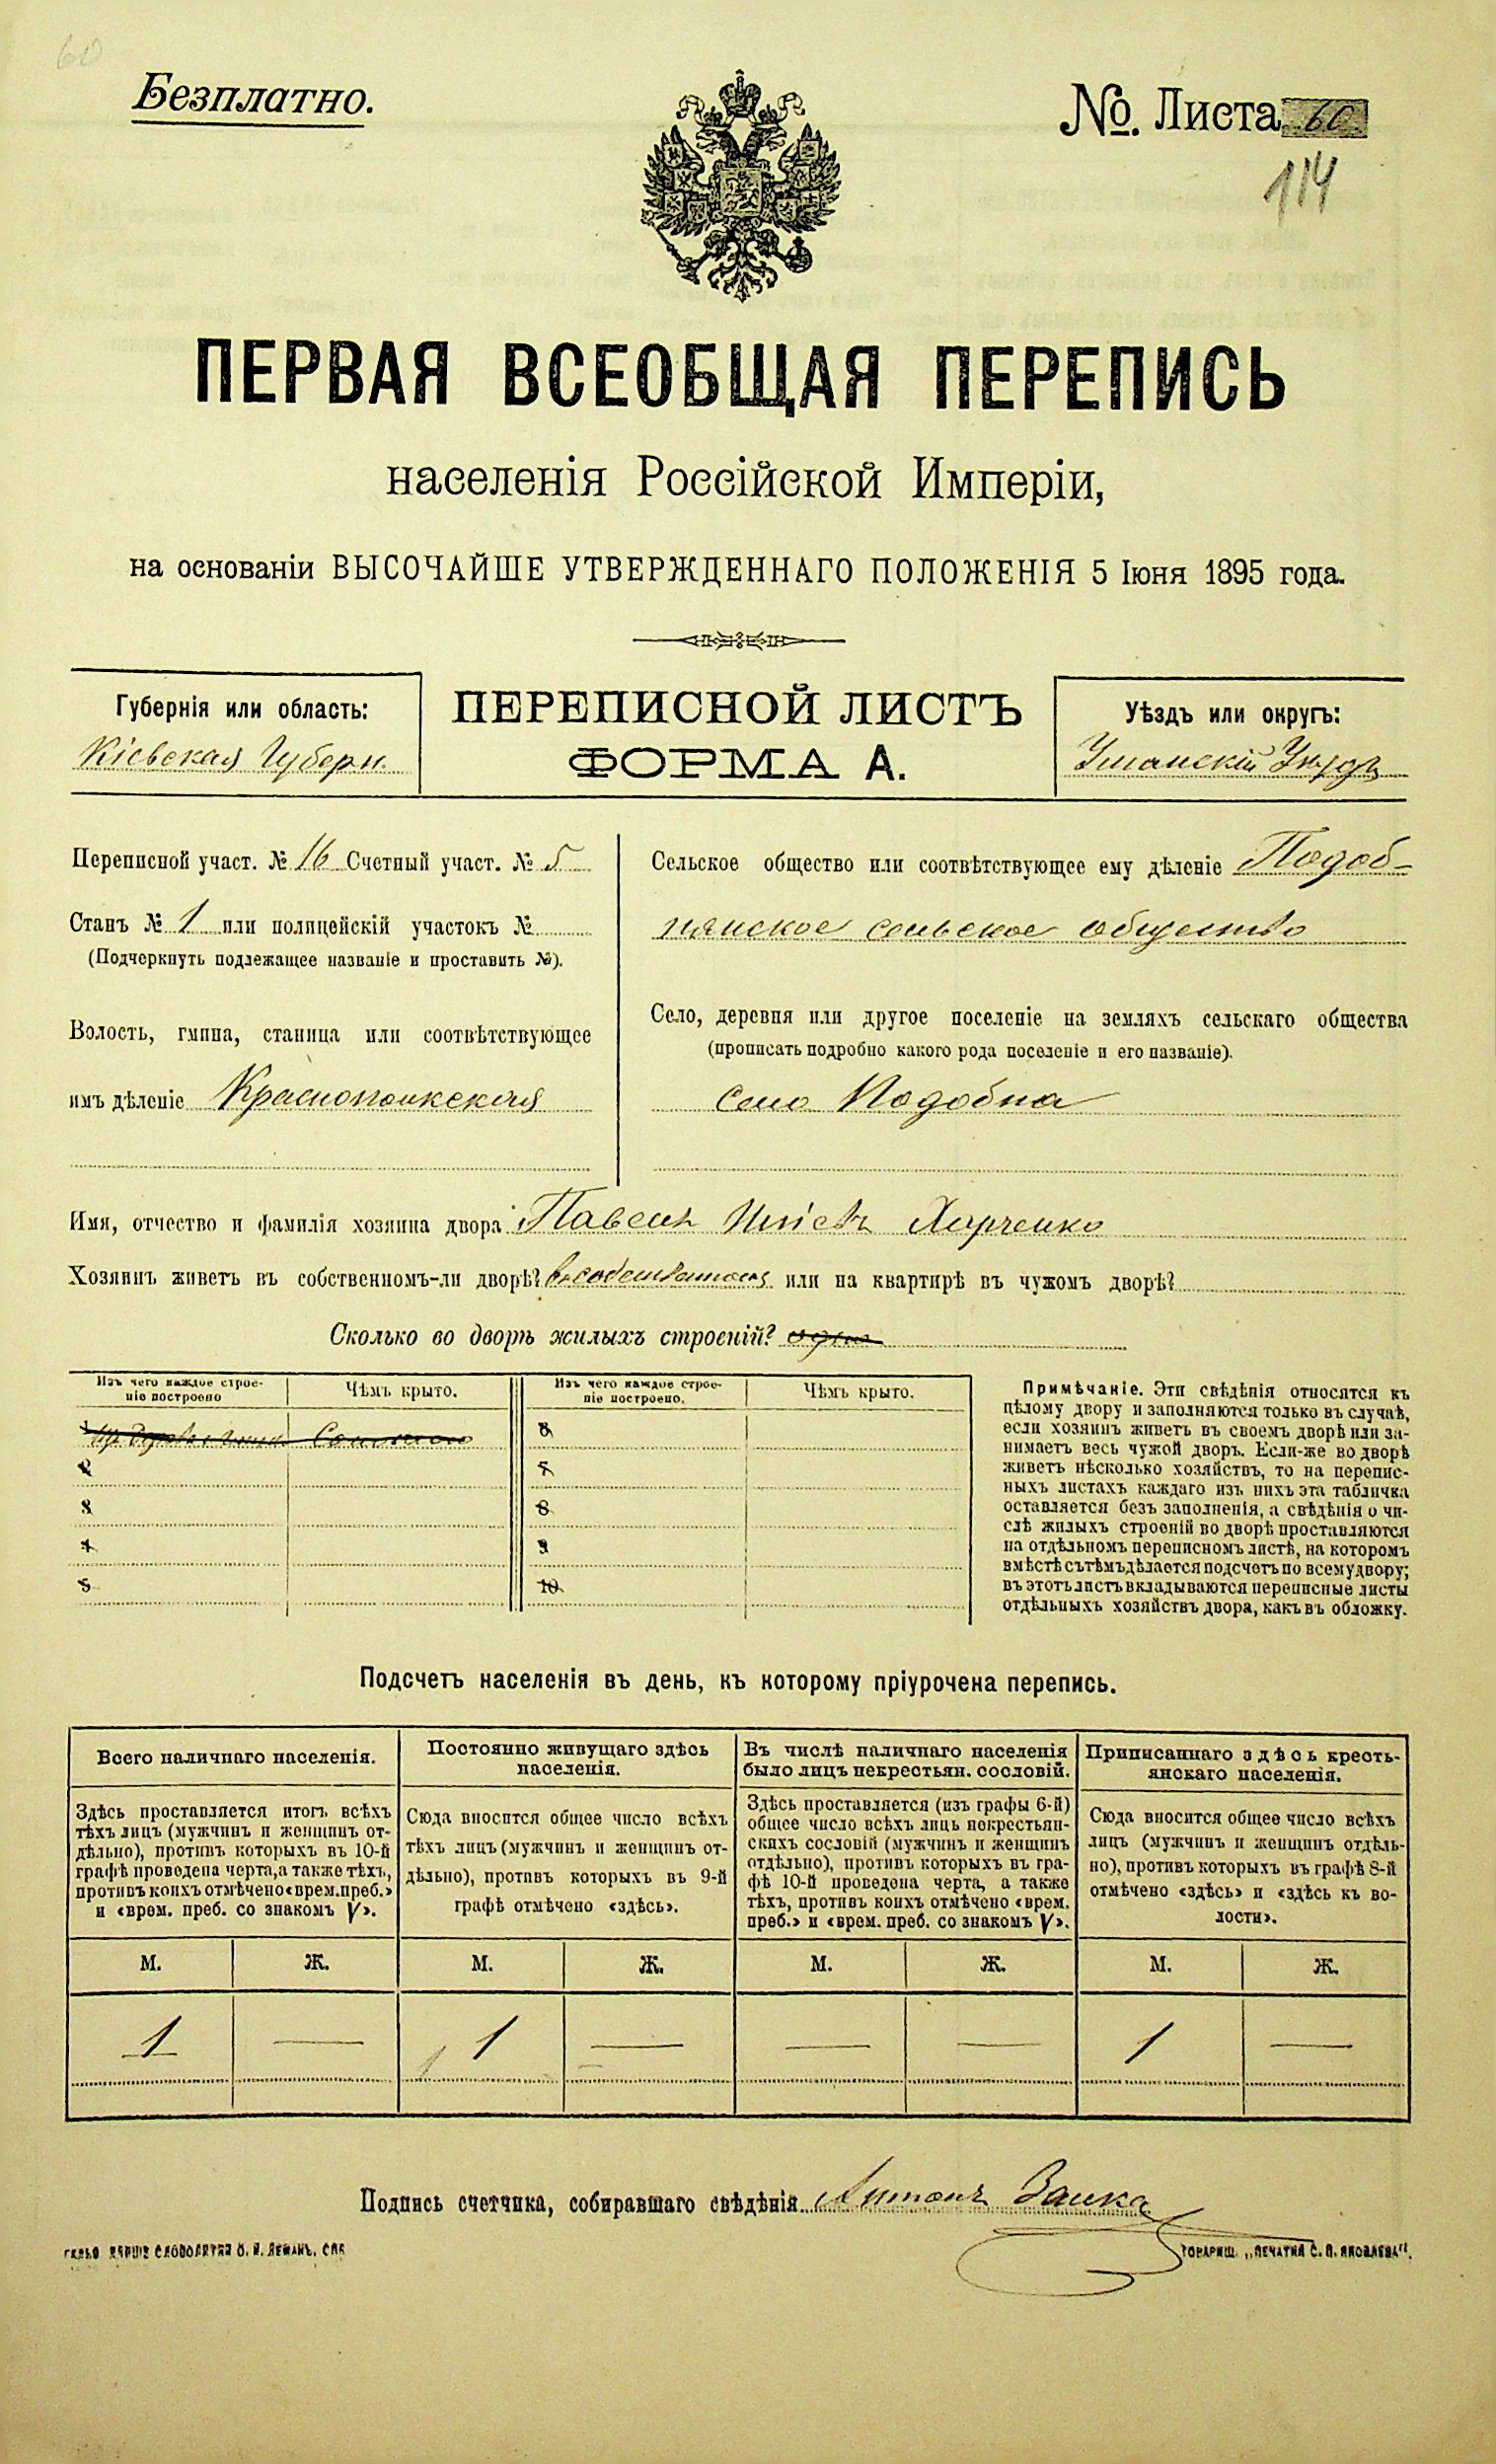 60
Безплатно.
№. Листа 60
114
ПЕРВАЯ ВСЕОБЩАЯ ПЕРЕПИСЬ
населенія Россійской Имперіи,
на основаніи ВЫСОЧАЙШЕ УТВЕРЖДЕННАГО ПОЛОЖЕНІЯ 5 Іюня 1895 года.
Губернія или область:
Кіевская Губерн.
ПЕРЕПИСНОЙ ЛИСТЪ
ФОРМА А.
Уѣздъ или округъ:
Уманскій Уѣздъ
Переписной участ. № 16 Счетный участ. № 5
Станъ № 1 или полицейскій участокъ №
(Подчеркнуть подлежащее названіе и проставить №).
Волость, гмина, станица или соотвѣтствующее
имъ дѣленіе Краснополкская
Сельское общество или соотвѣтствующее ему дѣленіе Подоб-
нянское сельское общество
Село, деревня или другое поселеніе на земляхъ сельскаго общества
(прописать подробно какого рода поселеніе и его названіе).
село Подобна
Имя, отчество и фамилія хозяина двора Павелъ Харченко
Хозяинъ живетъ въ собственномъ-ли дворѣ? или на квартирѣ въ чужомъ дворѣ?
Сколько во дворѣ жилыхъ строеній? одно
Изъ чего каждое строе-
ніе построено
Чѣмъ крыто.
Изъ чего каждое строе-
ніе построено.
Чѣмъ крыто.
1 Соломою
2
3
4
5
6
7
8
9
10
Примѣчаніе. Эти свѣдѣнія относятся къ
цѣлому двору и заполняются только въ случаѣ,
если хозяинъ живетъ въ своемъ дворѣ или за-
нимаетъ весь чужой дворъ. Если-же во дворѣ
живетъ нѣсколько хозяйствъ, то на перепис-
ныхъ листахъ каждаго изъ нихъ эта табличка
оставляется безъ заполненія, а свѣдѣнія о чи-
слѣ жилыхъ строеній во дворѣ проставляются
на отдѣльномъ переписномъ листѣ, на которомъ
вмѣстѣ съ тѣмъ дѣлается подсчетъ по всему двору;
въ этотъ листъ вкладываются переписные листы
отдѣльныхъ хозяйствъ двора, какъ въ обложку.
Подсчетъ населенія въ день, къ которому пріурочена перепись.
Всего наличнаго населенія.
Постоянно живущаго здѣсь
населенія.
Въ числѣ наличнаго населенія
было лицъ некрестьян. сословій.
Приписаннаго здѣсь кресть-
янскаго населенія.
Здѣсь проставляется итогъ всѣхъ
тѣхъ лицъ (мужчинъ и женщинъ от-
дѣльно), противъ которыхъ въ 10-й
графѣ проведена черта, а также тѣхъ,
противъ коихъ отмѣчено «врем. преб.»
и «врем. преб. со знакомъ V».
Сюда вносится общее число всѣхъ
тѣхъ лицъ (мужчинъ и женщинъ от-
дѣльно), противъ которыхъ въ 9-й
графѣ отмѣчено «здѣсь».
Здѣсь проставляется (изъ графы 6-й)
общее число всѣхъ лицъ некрестьян-
скихъ сословій (мужчинъ и женщинъ
отдѣльно), противъ которыхъ въ гра-
фѣ 10-й проведена черта, а также
тѣхъ, противъ коихъ отмѣчено «врем.
преб.» и «врем. преб. со знакомъ V».
Сюда вносится общее число всѣхъ
лицъ (мужчинъ и женщинъ отдѣль-
но), противъ которыхъ въ графѣ 8-й
отмѣчено «здѣсь» и «здѣсь къ во-
лости».
М. Ж. М. Ж. М. Ж. М. Ж.
1 — 1 — — — 1 —
Подпись счетчика, собиравшаго свѣдѣнія Антонъ Заика
СЛОВОЛИТНЯ О. И. ЛЕМАНЪ, СПБ
ТОВАРИЩ. „ПЕЧАТНЯ С. П. ЯКОВЛЕВА".